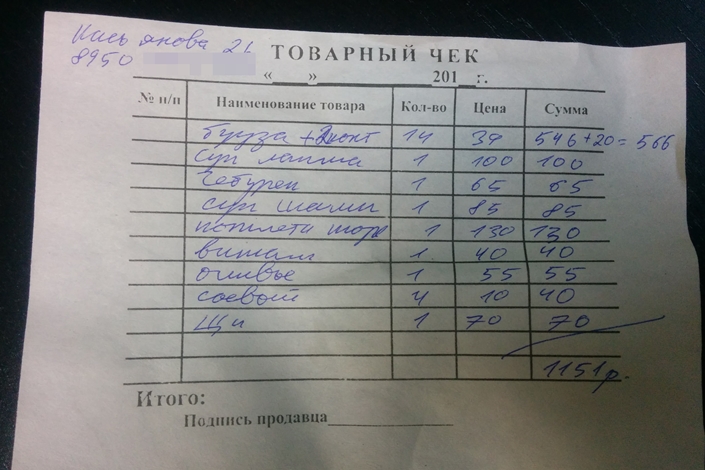 Касьянова 21
8950
ТОВАРНЫЙ ЧЕК
«____»____________201__г.
№ п/п Наименование товара Кол-во Цена Сумма
бууза +2конт 14 39 546+20=566
суп лапша 1 100 100
Чебурек 1 65 65
суп 1 85 85
котлета 1 130 130
1 40 40
оливье 1 55 55
соевый 4 10 40
Щи 1 70 70
1151р.
Итого:
Подпись продавца______________